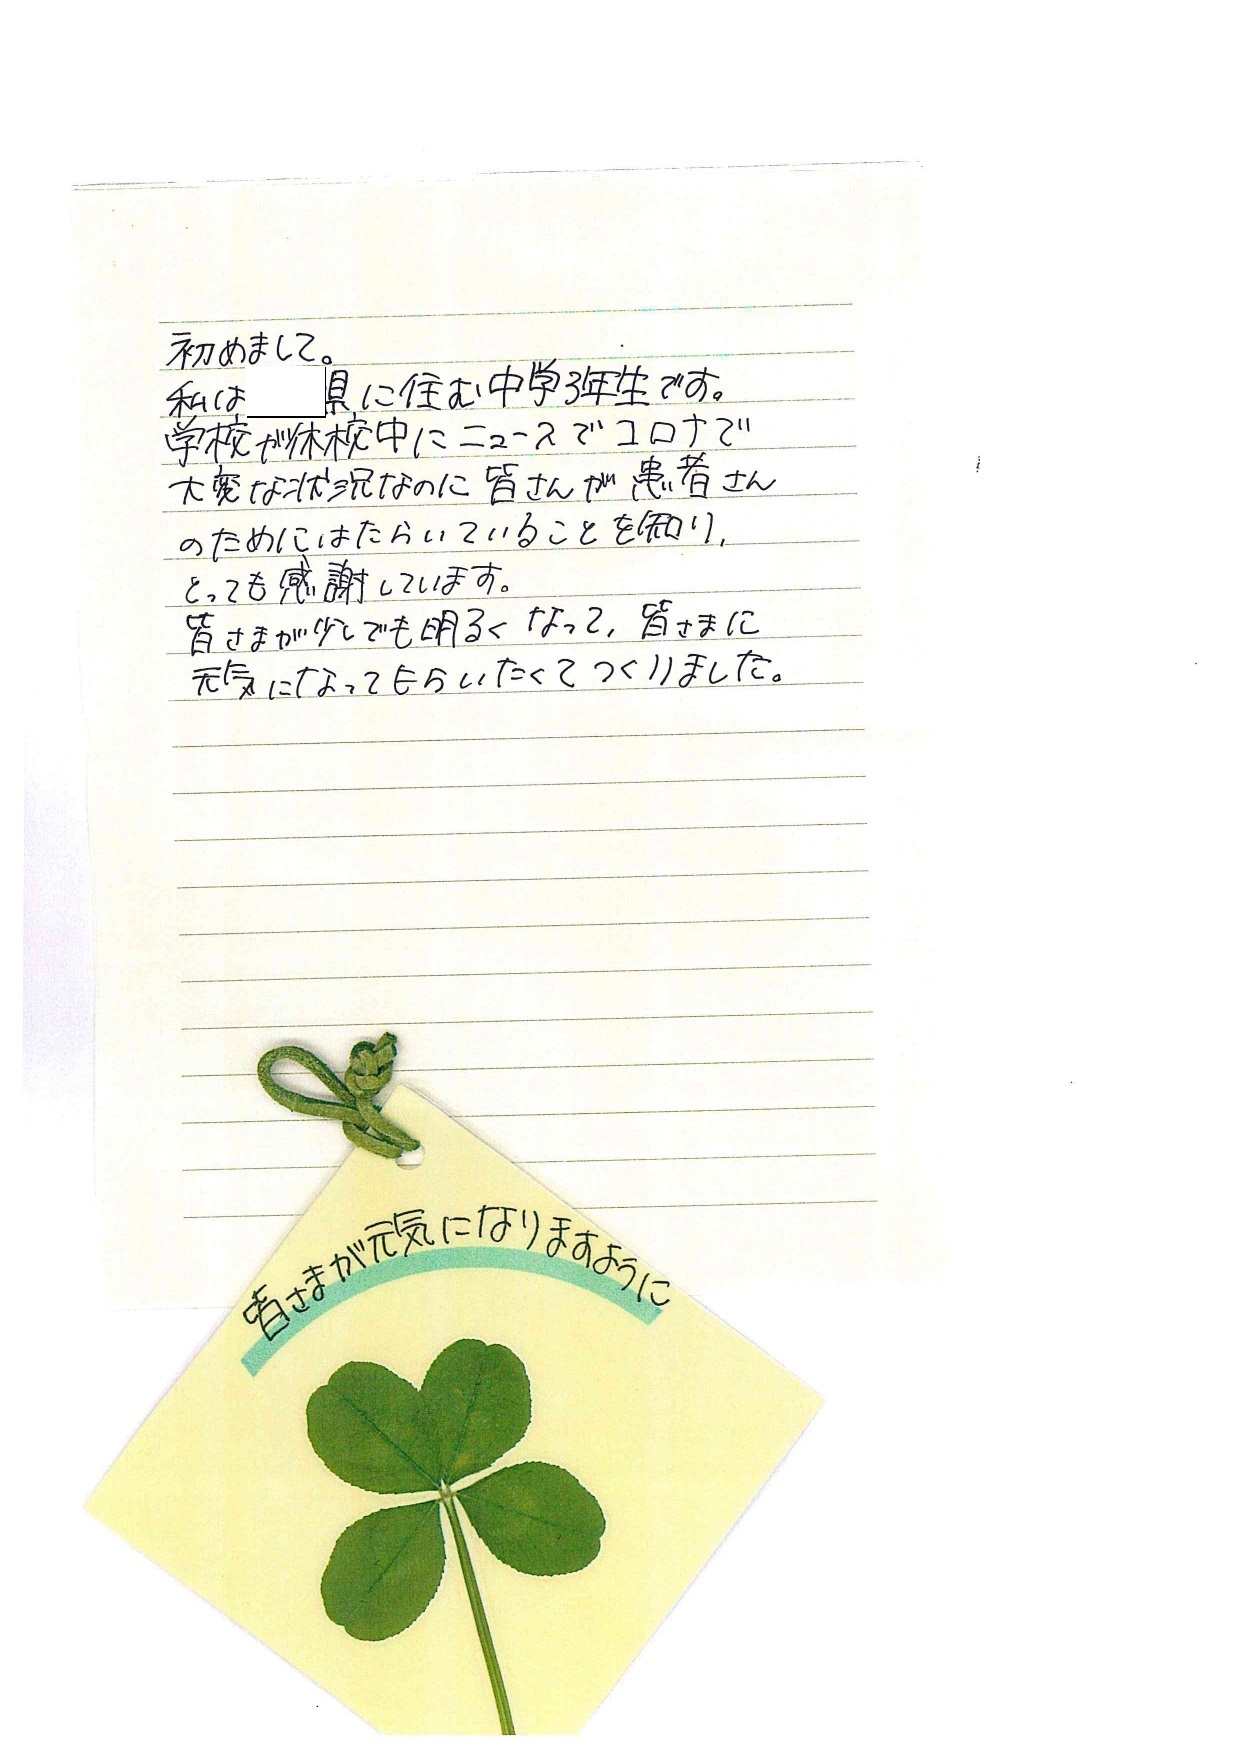 初めまして。
私は 県に住む中学3年生です。
学校が休校中にニュースでコロナで
大変な状況なのに皆さんが患者さん
のためにはたらいていることを知り、
とっても感謝しています。
皆さまが少しでも明るくなって、皆さまに
元気になってもらいたくてつくりました。
皆さまが元気になりますように